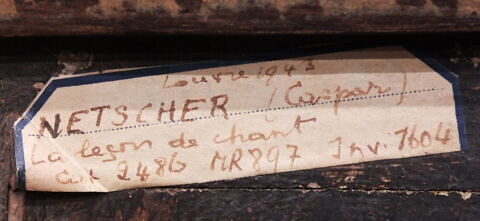 Louvre 1943
NETSCHER (Caspar)
La leçon de chant
cat 2486 MR 897 Inv. 1604